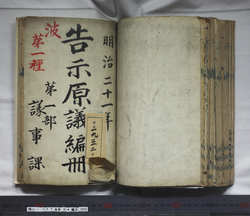 明治二十一年
告示原議編冊
波
第一種
第一部
議事課
二九五二